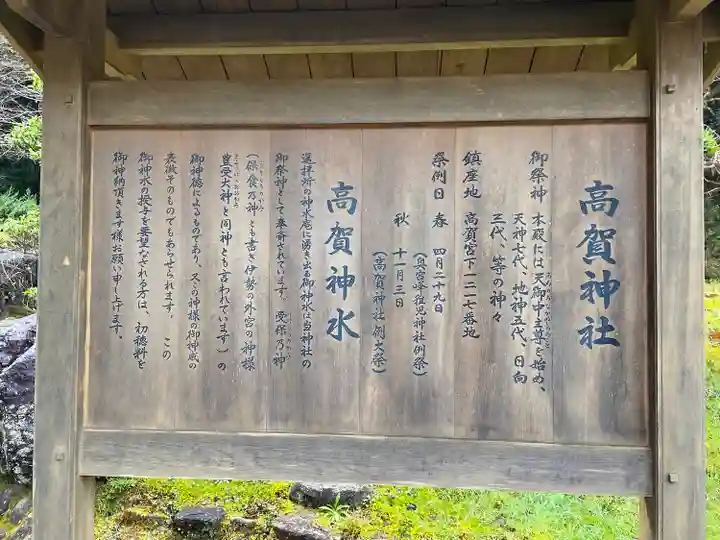 高賀神社
御祭神 本殿には天御中主尊を始め、
天神七代、地神五代、日向
三代、等の神々
鎮座地 高賀宮下一二七番地
祭例日 春 四月二十九日
(奥宮峰稚児神社例祭)
秋 十一月三日
(高賀神社例大祭)
高賀神水
遥拝所の神水庵に湧き出る御神水は当神社の
御祭神として奉斎されています。受保乃神
(保食乃神とも書き伊勢の外宮の神様
豊受大神と同神とも言われています)の
御神徳によるものであり、又この神様の御神威の
表徴そのものでもあらせられます。 この
御神水の授与を要望なされる方は、初穂料を
御神納頂きます様お願い申し上げます。